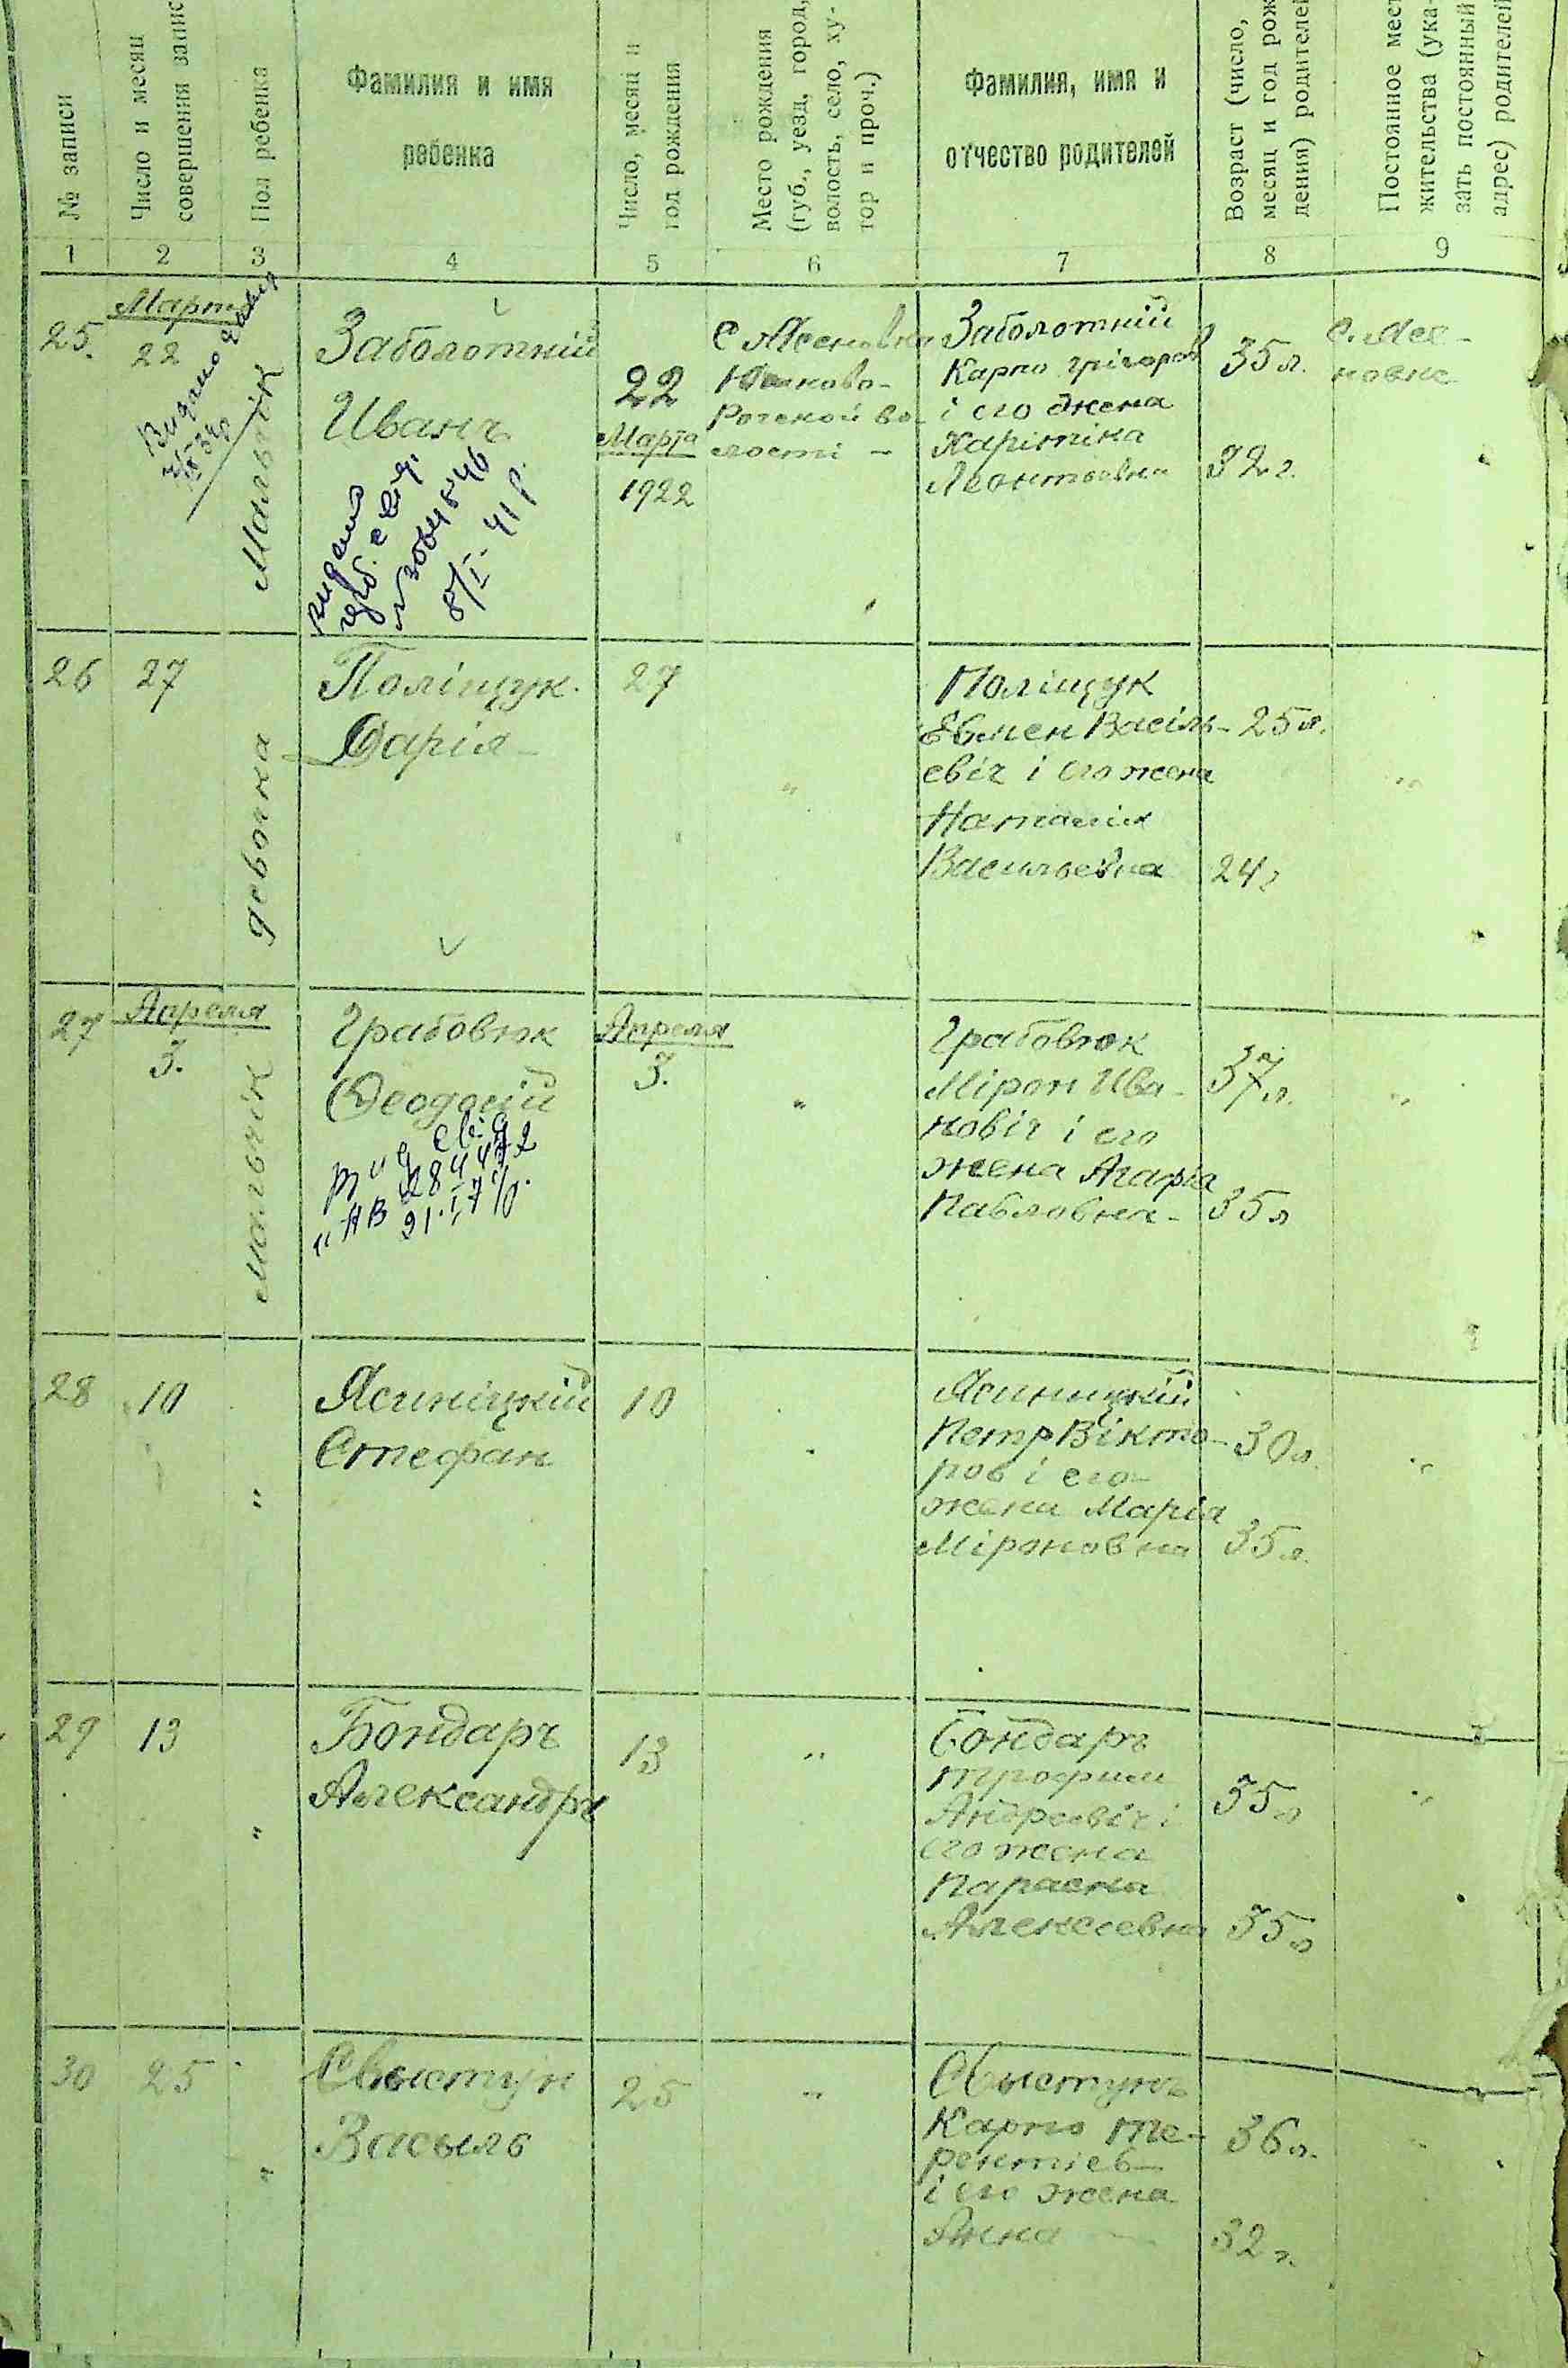 № записи
Число и месяц
совершения запис
Пол ребенка
Фамилия и имя
ребенка
Число, месяц и
год рождения
Место рождения
(губ., уезд, город,
волость, село, ху-
тор и проч.)
Фамилия, имя и
отчество родителей
Возраст (число,
месяц и год рож
дения) родителей
Постоянное мест
жительства (ука-
зать постоянный
адрес) родителей
1 2 3 4 5 6 7 8 9
25.
Март
22
Видано
Мальчік
Заболотній
Иванъ
видано
8/I. 41 р.
22
Марта
1922
волості -
Заболотній
Карпо Грігоров
і его жена
Харітіна
Леонтьевна
35 л.
32 г.
26
27
девочка
Поліщук.
Дарія
27
"
Поліщук
Евмен Васіль-
евіч і его жена
Наталія
Васильевна
25 л.
24 г
"
27
Апреля
3.
Мальчік
Грабовюк
Феодосій
Апреля
3.
"
Грабовюк
Мірон Ива-
новіч і его
жена Агарія
Павловна-
37 л.
35 л
"
28
10
"
Ясиніцкій
Стефан
10
"
Ясиницкій
Петр Вікто-
ров і его-
жена Марія
Міроновна
30 л.
35 л.
"
29
13
"
Бондаръ
Александръ
13
"
Бондаръ
Трофим
Андреевіч і
его жена
Параска
Алексеевна
35 л
35 л
"
30
25
"
Свыстун
Васыль
25
"
Свыстунъ
Карпо Те-
рентіев-
і его жена
Анна
36 л.
32 г.
"